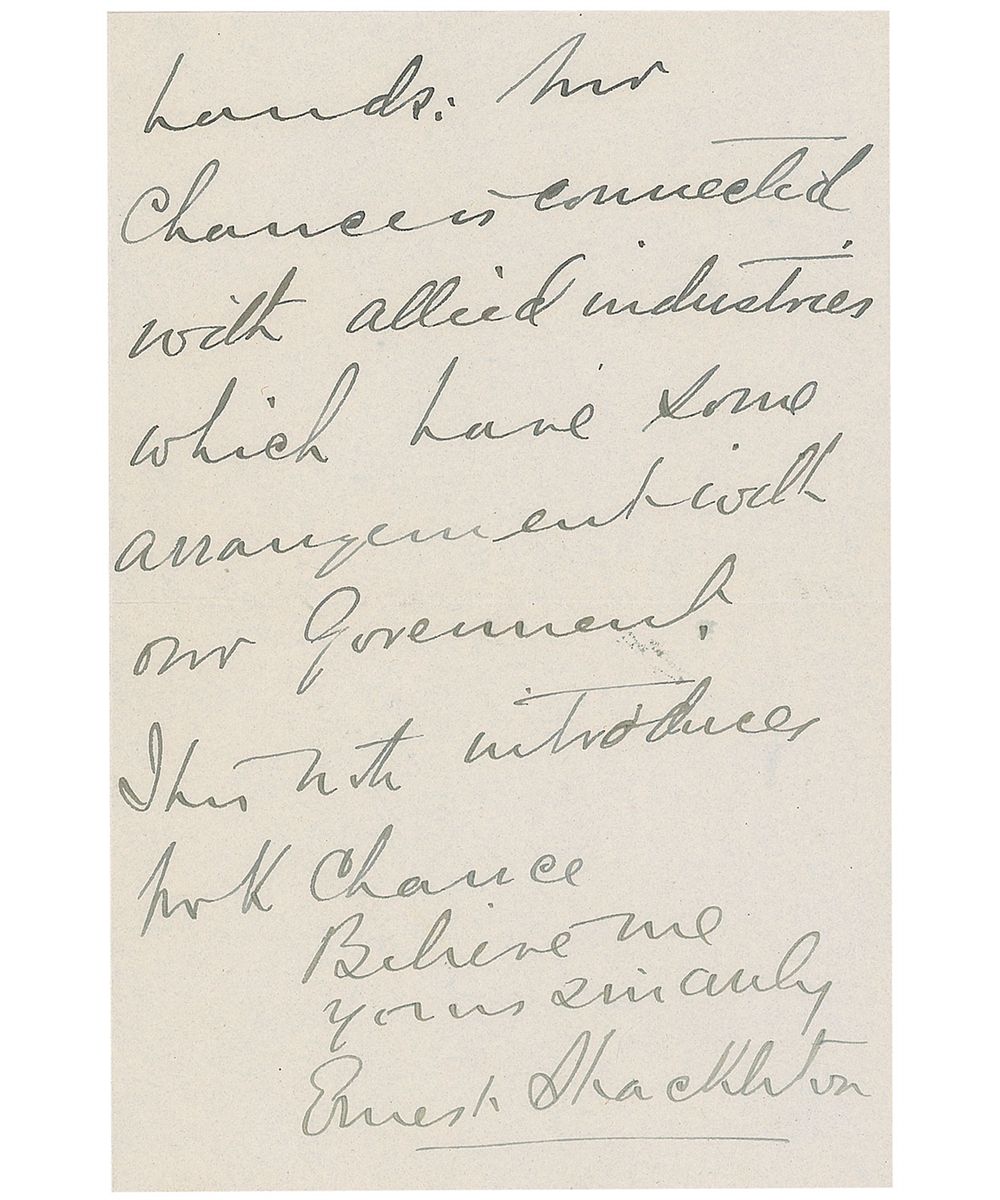 hands. Mr
Chance is connected
with allied industries
which have some
arrangement with
our Government.
This note introduces
Mr K Chance
Believe me
yours sincerely
Ernest Shackleton